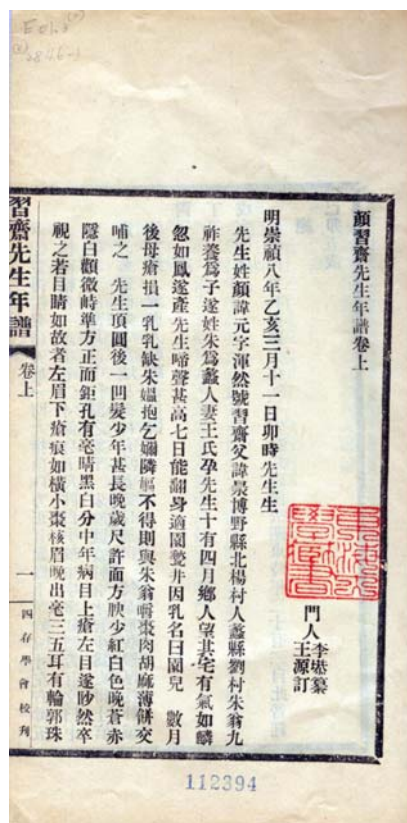 顏習齋先生年譜卷上
門人李塨纂
王源訂
明崇禎八年乙亥三月十一日卯時先生生
先生姓顏諱元字渾然號習齋父諱㫤博野縣北楊村人蠡縣劉村朱翁九
祚養爲子遂姓朱爲蠡人妻王氏孕先生十有四月鄉人望其宅有氣如麟
忽如鳳遂產先生啼聲甚高七日能翻身適園甃井因乳名曰園兒 數月
後母瘡損一乳乳缺朱媼抱乞嫺隣媼不得則與朱翁嚼棗肉胡麻薄餅交
哺之 先生頂圓後一凹髮少年甚長晚歲尺許面方腴少紅白色晚蒼赤
隱白顴微峙準方正面鉅孔有毫睛黑白分中年病目上瘡左目遂眇然卒
視之若目睛如故者左眉下瘡痕如橫小棗核眉晚出毫三五耳有輪郭珠
習齋先生年譜
卷上
一
四存學會校刊
112394